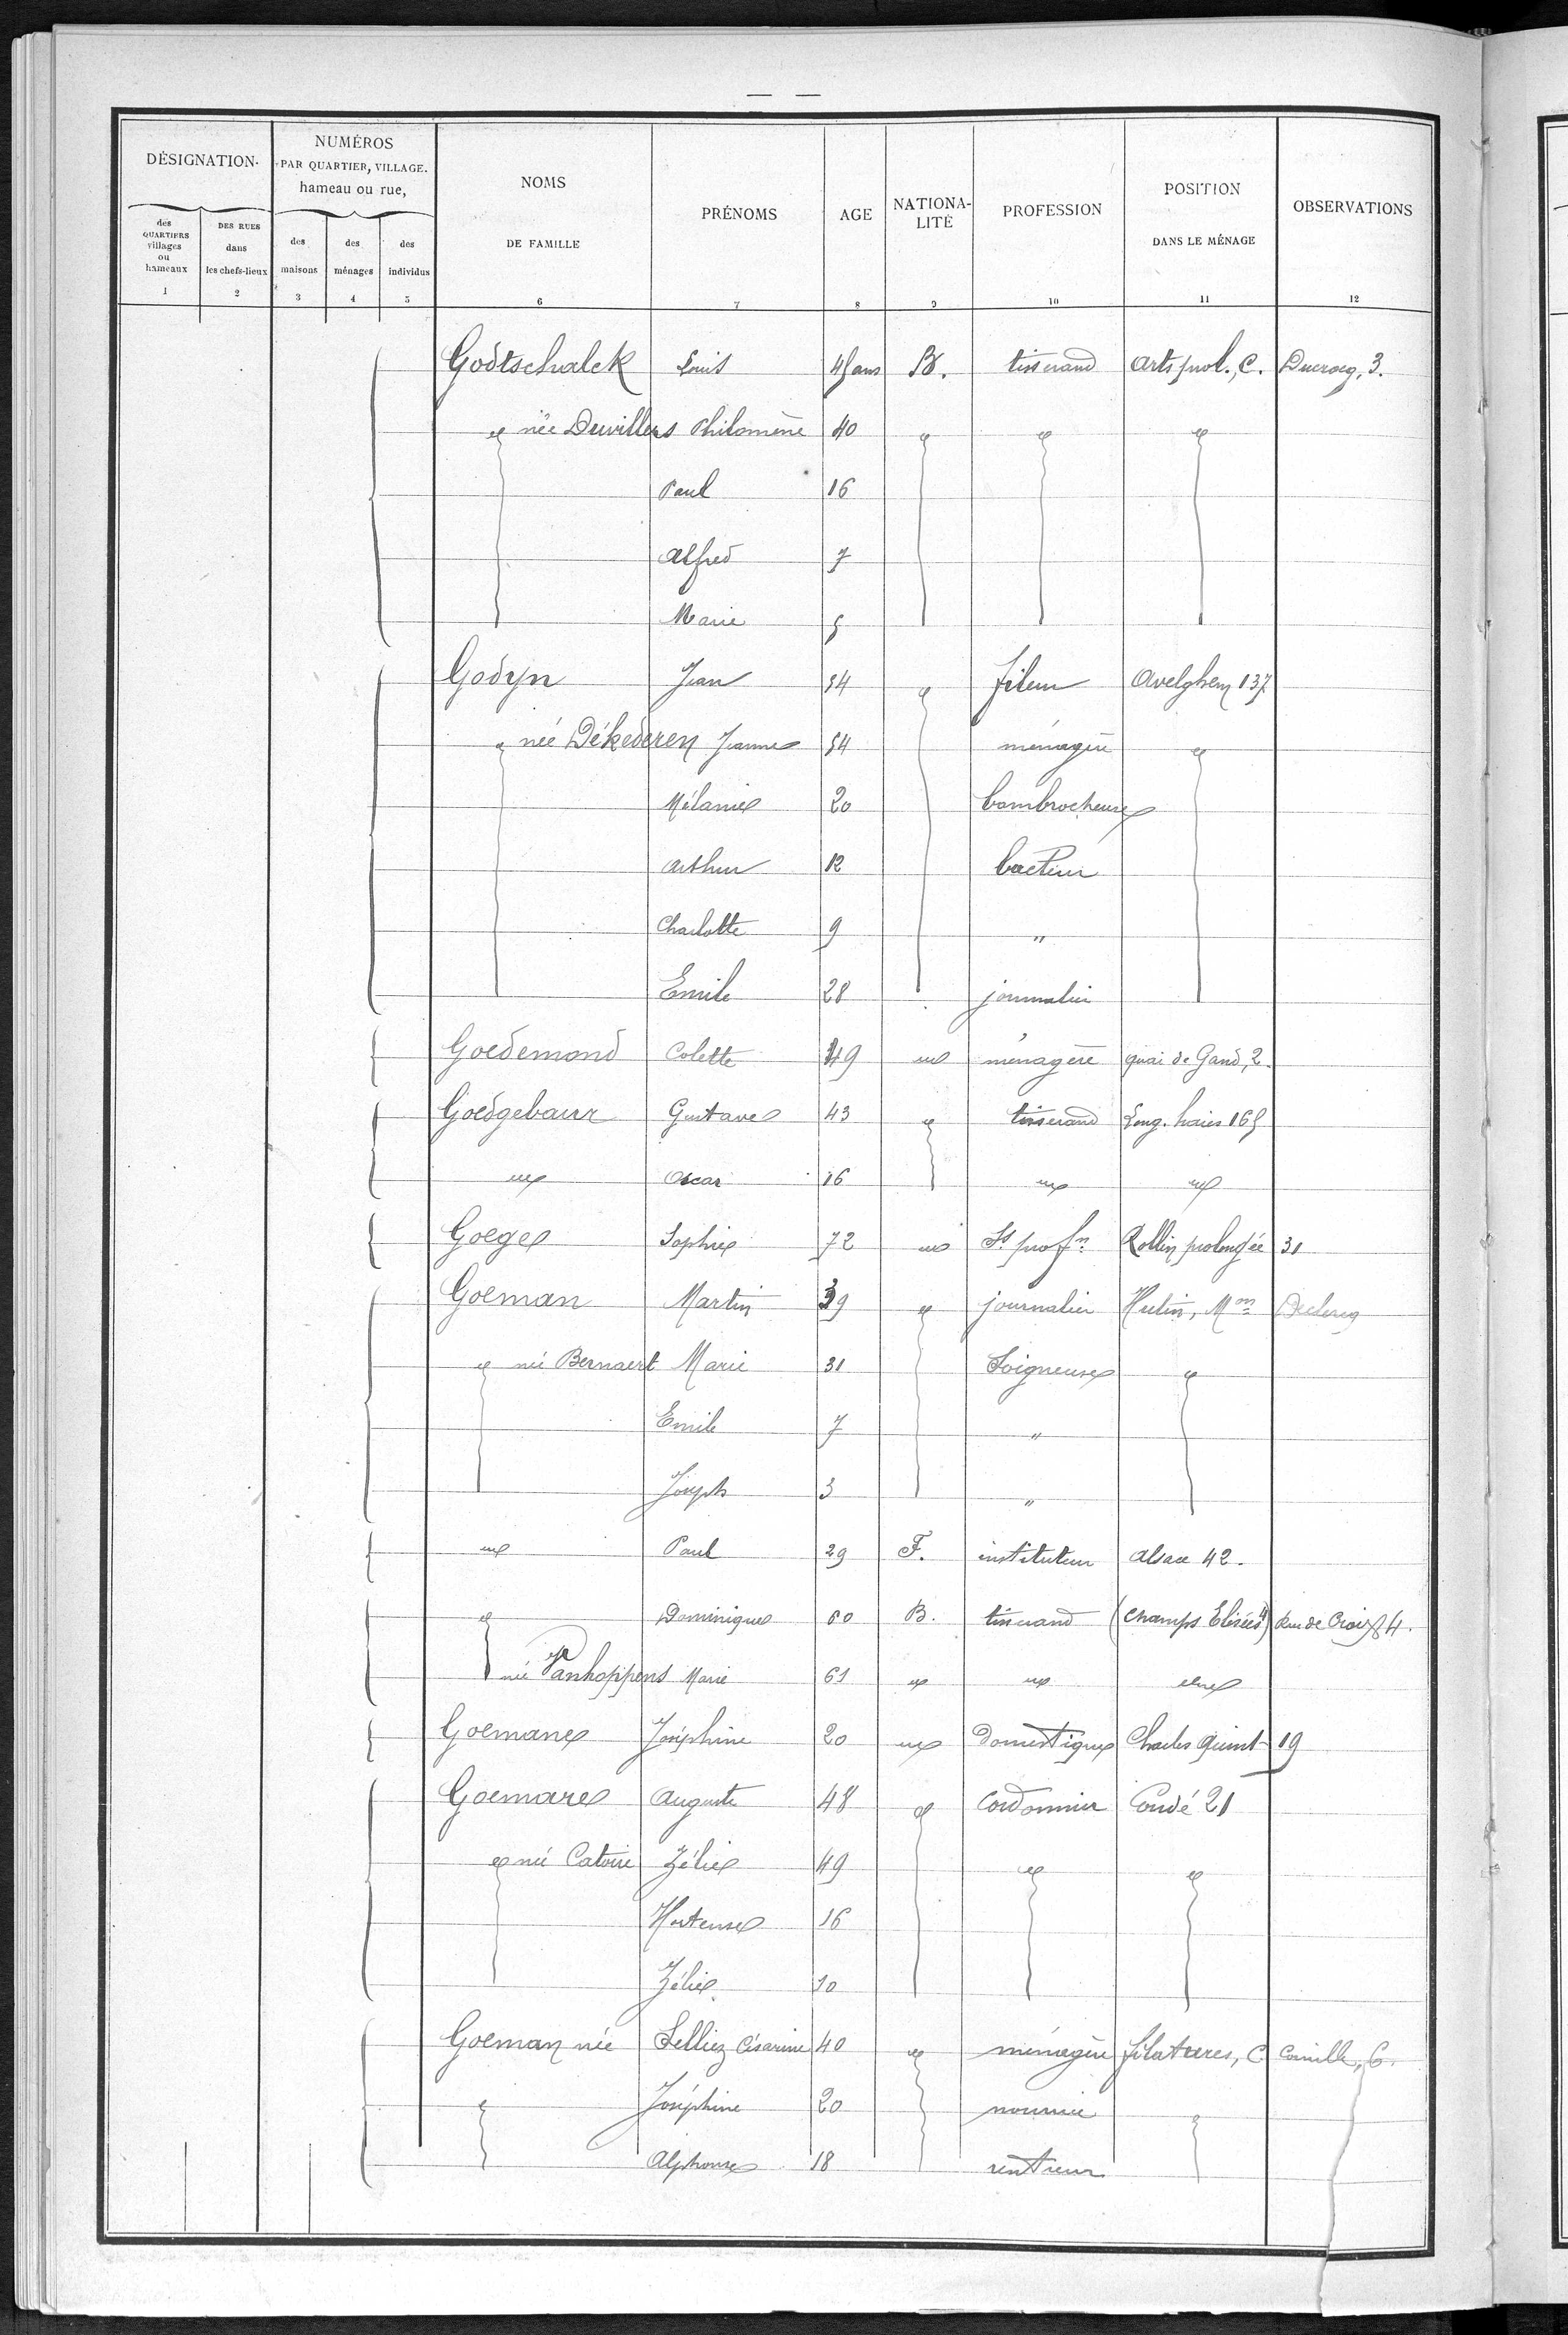 DÉSIGNATION
des QUARTIERS villages ou hameaux
DES RUES dans les chefs-lieux
NUMÉROS
PAR QUARTIER, VILLAGE.
hameau ou rue,
des maisons
des ménages
des individus
NOMS
DE FAMILLE
PRÉNOMS
AGE
NATIONA-
LITÉ
PROFESSION
POSITION
DANS LE MÉNAGE
OBSERVATIONS
1 2 3 4 5 6 7 8 9 10 11 12
Godtschalck Louis 45 ans B. tisserand Arts prol., C. Ducrocq, 3.
née Duvillers Philomène 40
Paul 16
Alfred 7
Marie 5
Godyn Jean 54 fileur Avelghem 137
née Dékederen Jeanne 54 ménagère
Mélanie 20 bambrocheuse
Arthur 12 bacteur
Charlotte 9 "
Emile 28 journalier
Goedemond Colette 49 ménagère quai de Gand, 2.
Goedgebauer Gustave 43 tisserand Long. haies 165
Oscar 16
Goege Sophie 72 Ss. profn. Rollin prolongée 31
Goeman Martin 39 journalier Hutin, Mon Declercq
née Bernaert Marie 31 Soigneuse
Emile 7 "
Joseph 3 "
Paul 29 F. instituteur Alsace 42.
Dominique 60 B. tisserand (Champs Elisées 4) Rue de Croix 84.
née Vanhoppens Marie 61
Goemane Joséphine 20 domestique Charles Quint 19
Goemare Auguste 48 Cordonnier Condé 21
née Catoire Zélie 49
Hortense 16
Zélie 10
Goeman née Selliez Césarine 40 ménagère filatures, C. Cornille, 6.
Joséphine 20 nourrice
Alphonse 18 rentreur